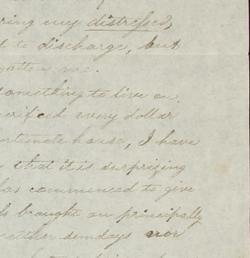 ring my distressed,
t to discharge, but
gotten me.
something to live on.
acrificed every dollar
fortunate house, I have
that it is surprizing
has commenced to give
brought on principally
neither sundays nor